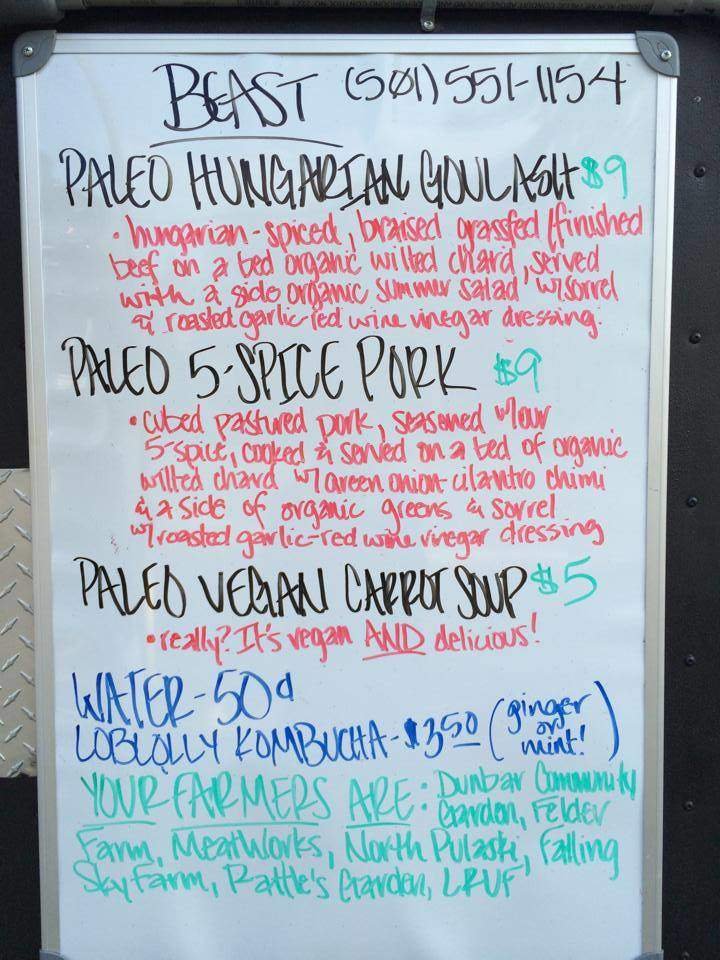 BEAST (501) 551-1154
PALEO HUNGARIAN GOULASH $9
• hungarian-spiced, braised grassfed/finished
beef on a bed organic wilted chard, served
with a side organic summer salad w/sorrel
& roasted garlic-red wine vinegar dressing.
PALEO 5-SPICE PORK $9
• cubed pastured pork, seasoned w/our
5-spice, cooked & served on a bed of organic
wilted chard w/ green onion-cilantro chimi
& a side of organic greens & sorrel
w/roasted garlic-red wine vinegar dressing
PALEO VEGAN CARROT SOUP $5
• really? It's vegan AND delicious!
WATER-50¢
LOBLOLLY KOMBUCHA-$3.50 (ginger or mint!)
YOUR FARMERS ARE: Dunbar Community
Garden, Felder
Farm, MeatWorks, North Pulaski, Falling
Sky Farm, Rattle's Garden, LRUF